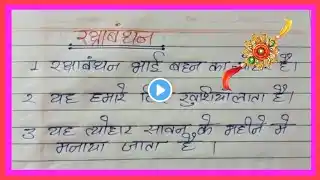 रक्षाबंधन
1 रक्षाबंधन भाई बहन का है।
2 यह हमारे खुशियाँ लाता है।
3 यह त्योहार सावन के महीने मे
मनाया जाता है ।